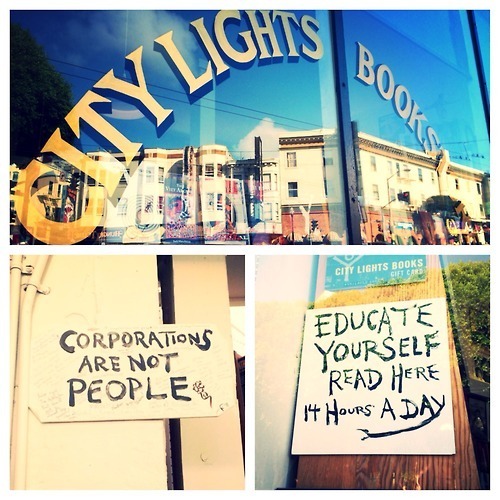 CITY LIGHTS
BOOKS
CORPORATIONS
ARE NOT
PEOPLE
CITY LIGHTS BOOKS
GIFT CARD
EDUCATE
YOURSELF
READ HERE
14 HOURS A DAY